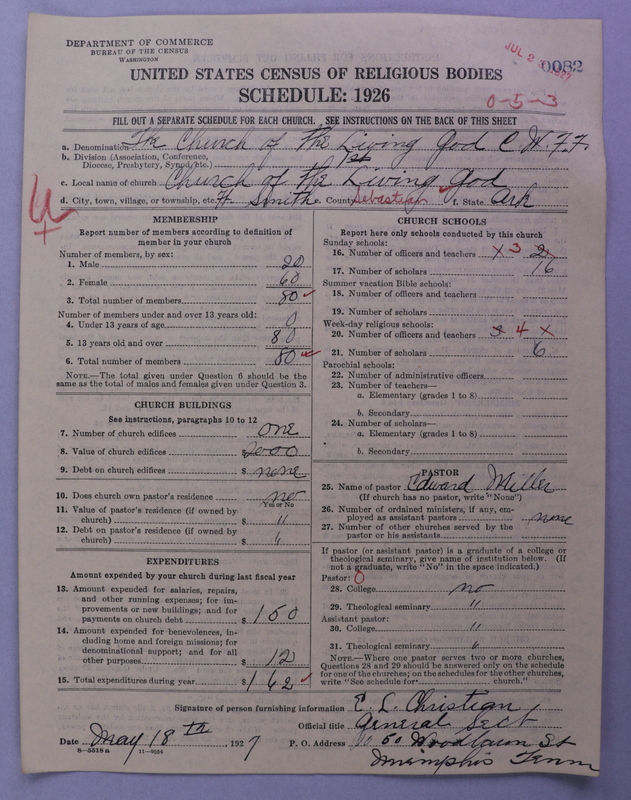 DEPARTMENT OF COMMERCE
BUREAU OF THE CENSUS
WASHINGTON
JUL 2 1927
0082
UNITED STATES CENSUS OF RELIGIOUS BODIES
SCHEDULE: 1926
0-5-3
FILL OUT A SEPARATE SCHEDULE FOR EACH CHURCH. SEE INSTRUCTIONS ON THE BACK OF THIS SHEET
a. Denomination The Church of The Living God C. W. F. F.
b. Division (Association, Conference, Diocese, Presbytery, Synod, etc.) 1st
c. Local name of church Church of The Living God
d. City, town, village, or township, etc. Ft. Smith e. County Sebastian f. State Ark
MEMBERSHIP
Report number of members according to definition of member in your church
Number of members, by sex:
1. Male 20
2. Female 60
3. Total number of members 80
Number of members under and over 13 years old:
4. Under 13 years of age 0
5. 13 years old and over 80
6. Total number of members 80
NOTE.—The total given under Question 6 should be the same as the total of males and females given under Question 3.
CHURCH BUILDINGS
See instructions, paragraphs 10 to 12
7. Number of church edifices one
8. Value of church edifices $2000
9. Debt on church edifices $ none
10. Does church own pastor's residence no
Yes or No
11. Value of pastor's residence (if owned by church) $ "
12. Debt on pastor's residence (if owned by church) $ "
EXPENDITURES
Amount expended by your church during last fiscal year
13. Amount expended for salaries, repairs, and other running expenses; for improvements or new buildings; and for payments on church debt $ 150
14. Amount expended for benevolences, including home and foreign missions; for denominational support; and for all other purposes $ 12
15. Total expenditures during year $ 162
CHURCH SCHOOLS
Report here only schools conducted by this church
Sunday schools:
16. Number of officers and teachers x 3 2
17. Number of scholars 16
Summer vacation Bible schools:
18. Number of officers and teachers
19. Number of scholars
Week-day religious schools:
20. Number of officers and teachers 4 x
21. Number of scholars 6
Parochial schools:
22. Number of administrative officers
23. Number of teachers—
a. Elementary (grades 1 to 8)
b. Secondary
24. Number of scholars—
a. Elementary (grades 1 to 8)
b. Secondary
PASTOR
25. Name of pastor Edward Miller
(If church has no pastor, write "None")
26. Number of ordained ministers, if any, employed as assistant pastors none
27. Number of other churches served by the pastor or his assistants
If pastor (or assistant pastor) is a graduate of a college or theological seminary, give name of institution below. (If not a graduate, write "No" in the space indicated.)
Pastor: 0
28. College no
29. Theological seminary "
Assistant pastor:
30. College "
31. Theological seminary "
NOTE.—Where one pastor serves two or more churches, Questions 28 and 29 should be answered only on the schedule for one of the churches; on the schedules for the other churches, write "See schedule for church."
Signature of person furnishing information E. L. Christian
Official title General Sect
Date May 18th, 1927 P. O. Address Woodlawn St
Memphis Tenn
8-5518 a 11-9264